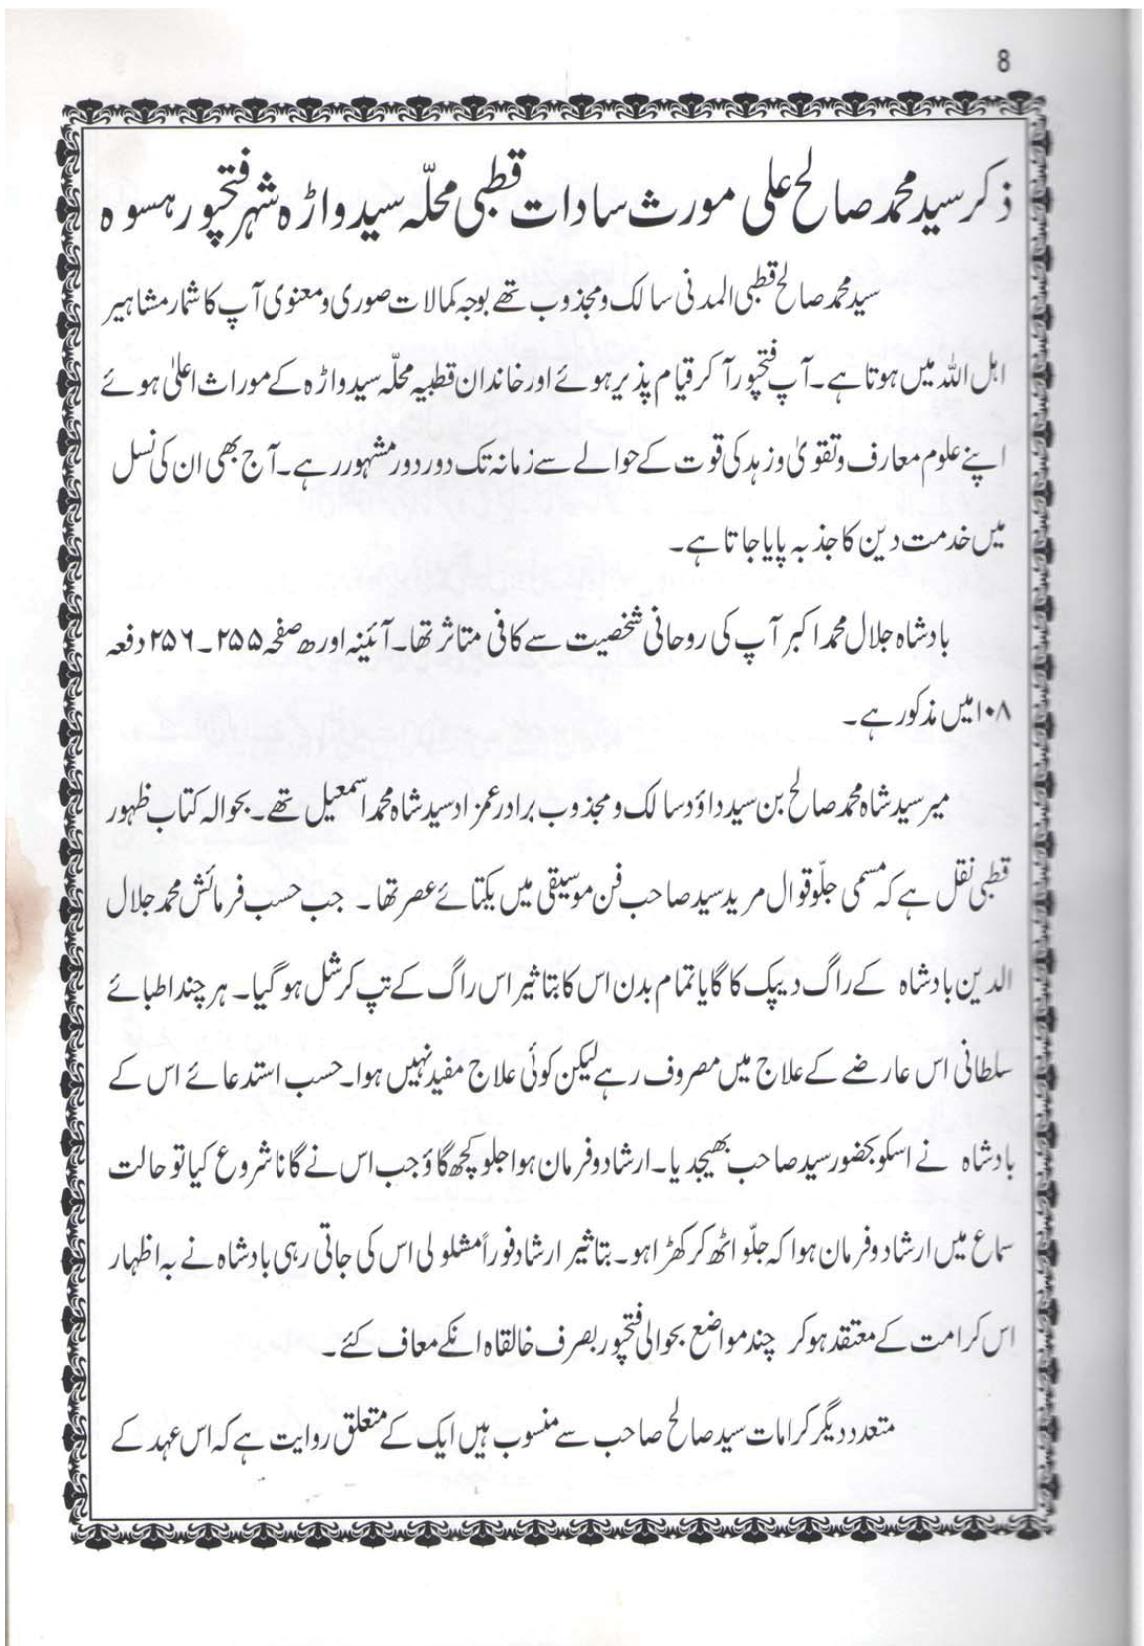 8
ذکر سید محمد صالح علی مورث سادات قطبی محلّہ سید واڑہ شہر فتحپور ہسوہ
سید محمد صالح قطبی المدنی سالک و مجذوب تھے بوجہ کمالات صوری و معنوی آپ کا شمار مشاہیر
اہل اللہ میں ہوتا ہے۔ آپ فتحپور آ کر قیام پذیر ہوئے اور خاندان قطبیہ محلّہ سید واڑہ کے موراث اعلیٰ ہوئے
اپنے علوم معارف و تقویٰ و زہد کی قوت کے حوالے سے زمانہ تک دور دور مشہور رہے۔ آج بھی ان کی نسل
میں خدمت دین کا جذبہ پایا جاتا ہے۔
بادشاہ جلال محمد اکبر آپ کی روحانی شخصیت سے کافی متاثر تھا۔ آئینہ اورھ صفحہ ۲۵۵۔۲۵۶ دفعہ
۱۰۸ میں مذکور ہے۔
میر سید شاہ محمد صالح بن سید داؤد سالک و مجذوب برادر عمزاد سید شاہ محمد اسمعیل تھے۔ بحوالہ کتاب ظہور
قطبی نقل ہے کہ مسمی جلّو قوال مرید سید صاحب فن موسیقی میں یکتائے عصر تھا۔ جب حسب فرمائش محمد جلال
الدین بادشاہ کے راگ دیپک کا گایا تمام بدن اس کا بتاثیر اس راگ کے تپ کر شل ہو گیا۔ ہر چند اطبائے
سلطانی اس عارضے کے علاج میں مصروف رہے لیکن کوئی علاج مفید نہیں ہوا۔ حسب استدعائے اس کے
بادشاہ نے اسکو بحضور سید صاحب بھیجدیا۔ ارشاد و فرمان ہوا جلو کچھ گاؤ جب اس نے گانا شروع کیا تو حالت
سماع میں ارشاد و فرمان ہوا کہ جلّو اٹھ کر کھڑا ہو۔ بتاثیر ارشاد فوراً مشلولی اس کی جاتی رہی بادشاہ نے بہ اظہار
اس کرامت کے معتقد ہو کر چند مواضع بحوالی فتحپور بصرف خالقاہ انکے معاف کئے۔
متعدد دیگر کرامات سید صالح صاحب سے منسوب ہیں ایک کے متعلق روایت ہے کہ اس عہد کے